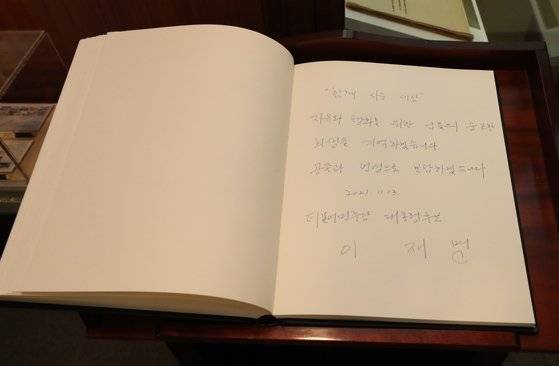 "함께 사는 세상"
자유와 평화를 위한 숭고한
희생을 기억하겠습니다
공존과 번영으로 보답하겠습니다
2021. 11. 13
더불어민주당 대통령후보
이 재 명